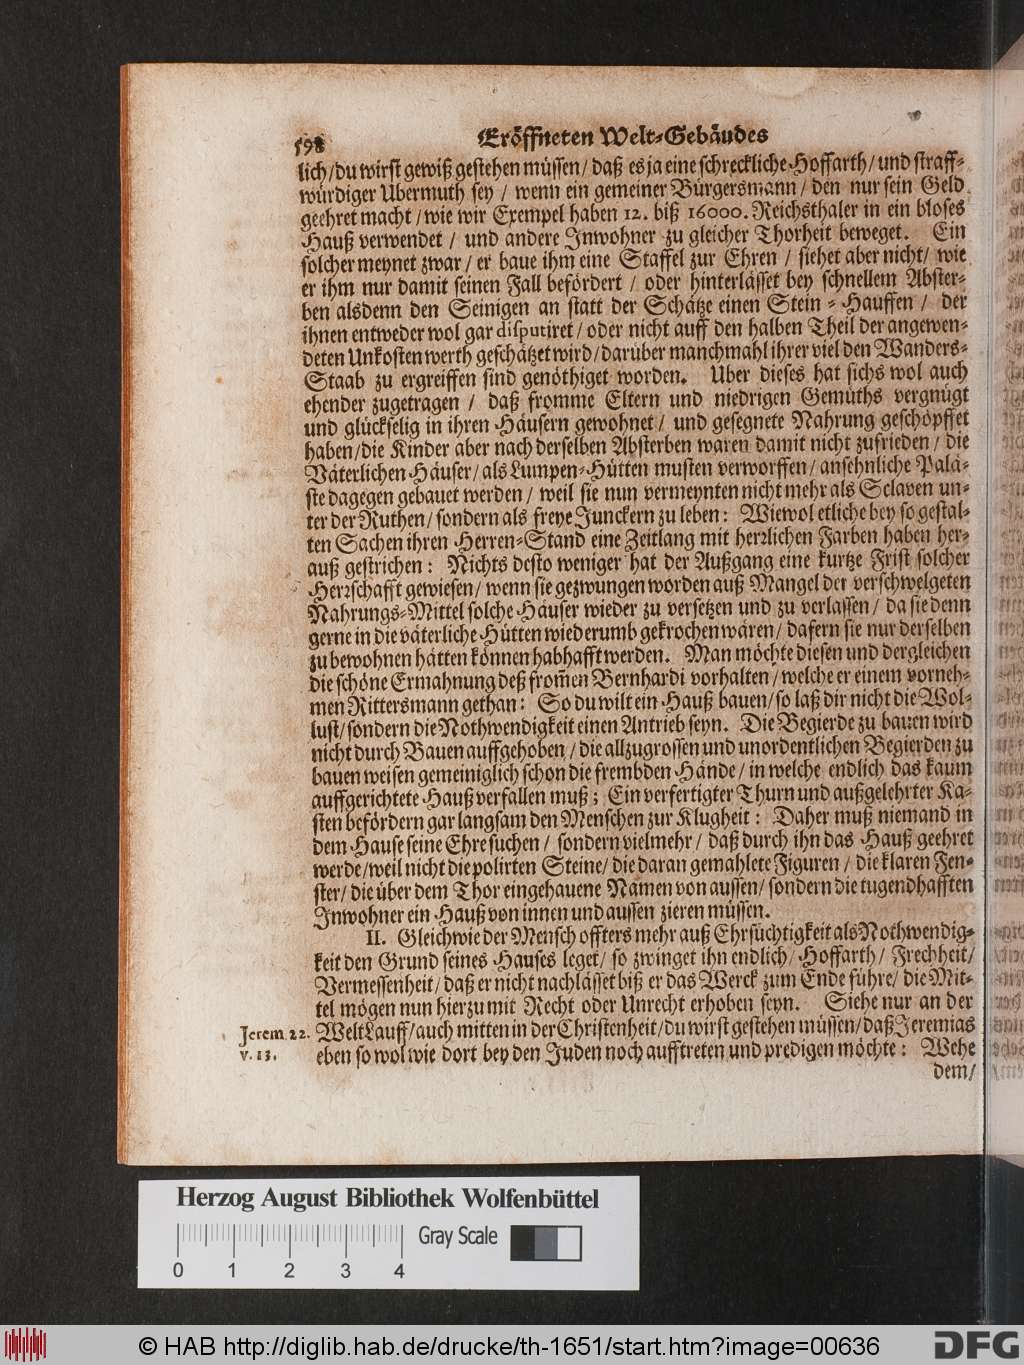 598 Eröffneten Welt-Gebäudes
lich/ du wirst gewiß gestehen müssen/ daß es ja eine schreckliche Hoffarth/ und straff-
würdiger Ubermuth sey / wenn ein gemeiner Bürgersmann/ den nur sein Geld
geehret macht/ wie wir Exempel haben 12. biß 16000. Reichsthaler in ein bloses
Hauß verwendet / und andere Inwohner zu gleicher Thorheit beweget. Ein
solcher meynet zwar/ er baue ihm eine Staffel zur Ehren / siehet aber nicht/ wie
er ihm nur damit seinen Fall befördert / oder hinterlässet bey schnellem Abster-
ben alsdenn den Seinigen an statt der Schätze einen Stein-Hauffen / der
ihnen entweder wol gar disputiret/ oder nicht auff den halben Theil der angewen-
deten Unkosten werth geschätzet wird/ darüber manchmahl ihrer viel den Wanders-
Staab zu ergreiffen sind genöthiget worden. Uber dieses hat sichs wol auch
ehender zugetragen / daß fromme Eltern und niedrigen Gemüths vergnügt
und glückselig in ihren Häusern gewohnet/ und gesegnete Nahrung geschöpffet
haben/ die Kinder aber nach derselben Absterben waren damit nicht zufrieden/ die
Väterlichen Häuser/ als Lumpen-Hütten musten verworffen/ ansehnliche Palä-
ste dagegen gebauet werden/ weil sie nun vermeynten nicht mehr als Sclaven un-
ter der Ruthen/ sondern als freye Junckern zu leben: Wiewol etliche bey so gestal-
ten Sachen ihren Herren-Stand eine Zeitlang mit herrlichen Farben haben her-
auß gestrichen: Nichts desto weniger hat der Außgang eine kurtze Frist solcher
Herrschafft gewiesen/ wenn sie gezwungen worden auß Mangel der verschwelgeten
Nahrungs-Mittel solche Häuser wieder zu versetzen und zu verlassen/ da sie denn
gerne in die väterliche Hütten wiederumb gekrochen wären/ dafern sie nur derselben
zu bewohnen hätten können habhafft werden. Man möchte diesen und dergleichen
die schöne Ermahnung deß from̃en Bernhardi vorhalten/ welche er einem vorneh-
men Rittersmann gethan: So du wilt ein Hauß bauen/ so laß dir nicht die Wol-
lust/ sondern die Nothwendigkeit einen Antrieb seyn. Die Begierde zu bauen wird
nicht durch Bauen auffgehoben/ die allzugrossen und unordentlichen Begierden zu
bauen weisen gemeiniglich schon die frembden Hände/ in welche endlich das kaum
auffgerichtete Hauß verfallen muß; Ein verfertigter Thurn und außgelehrter Ka-
sten befördern gar langsam den Menschen zur Klugheit: Daher muß niemand in
dem Hause seine Ehre suchen/ sondern vielmehr/ daß durch ihn das Hauß geehret
werde/ weil nicht die polirten Steine/ die daran gemahlete Figuren/ die klaren Fen-
ster/ die über dem Thor eingehauene Namen von aussen/ sondern die tugendhafften
Inwohner ein Hauß von innen und aussen zieren müssen.
II. Gleichwie der Mensch öffters mehr auß Ehrsüchtigkeit als Nothwendig-
keit den Grund seines Hauses leget/ so zwinget ihn endlich/ Hoffarth/ Frechheit/
Vermessenheit/ daß er nicht nachlässet biß er das Werck zum Ende führe/ die Mit-
tel mögen nun hierzu mit Recht oder Unrecht erhoben seyn. Siehe nur an der
Jerem. 22. Welt Lauff/ auch mitten in der Christenheit/ du wirst gestehen müssen/ daß Jeremias
v. 13. eben so wol wie dort bey den Juden noch aufftreten und predigen möchte: Wehe
dem/
Herzog August Bibliothek Wolfenbüttel
Gray Scale
0 1 2 3 4
© HAB http://diglib.hab.de/drucke/th-1651/start.htm?image=00636 DFG